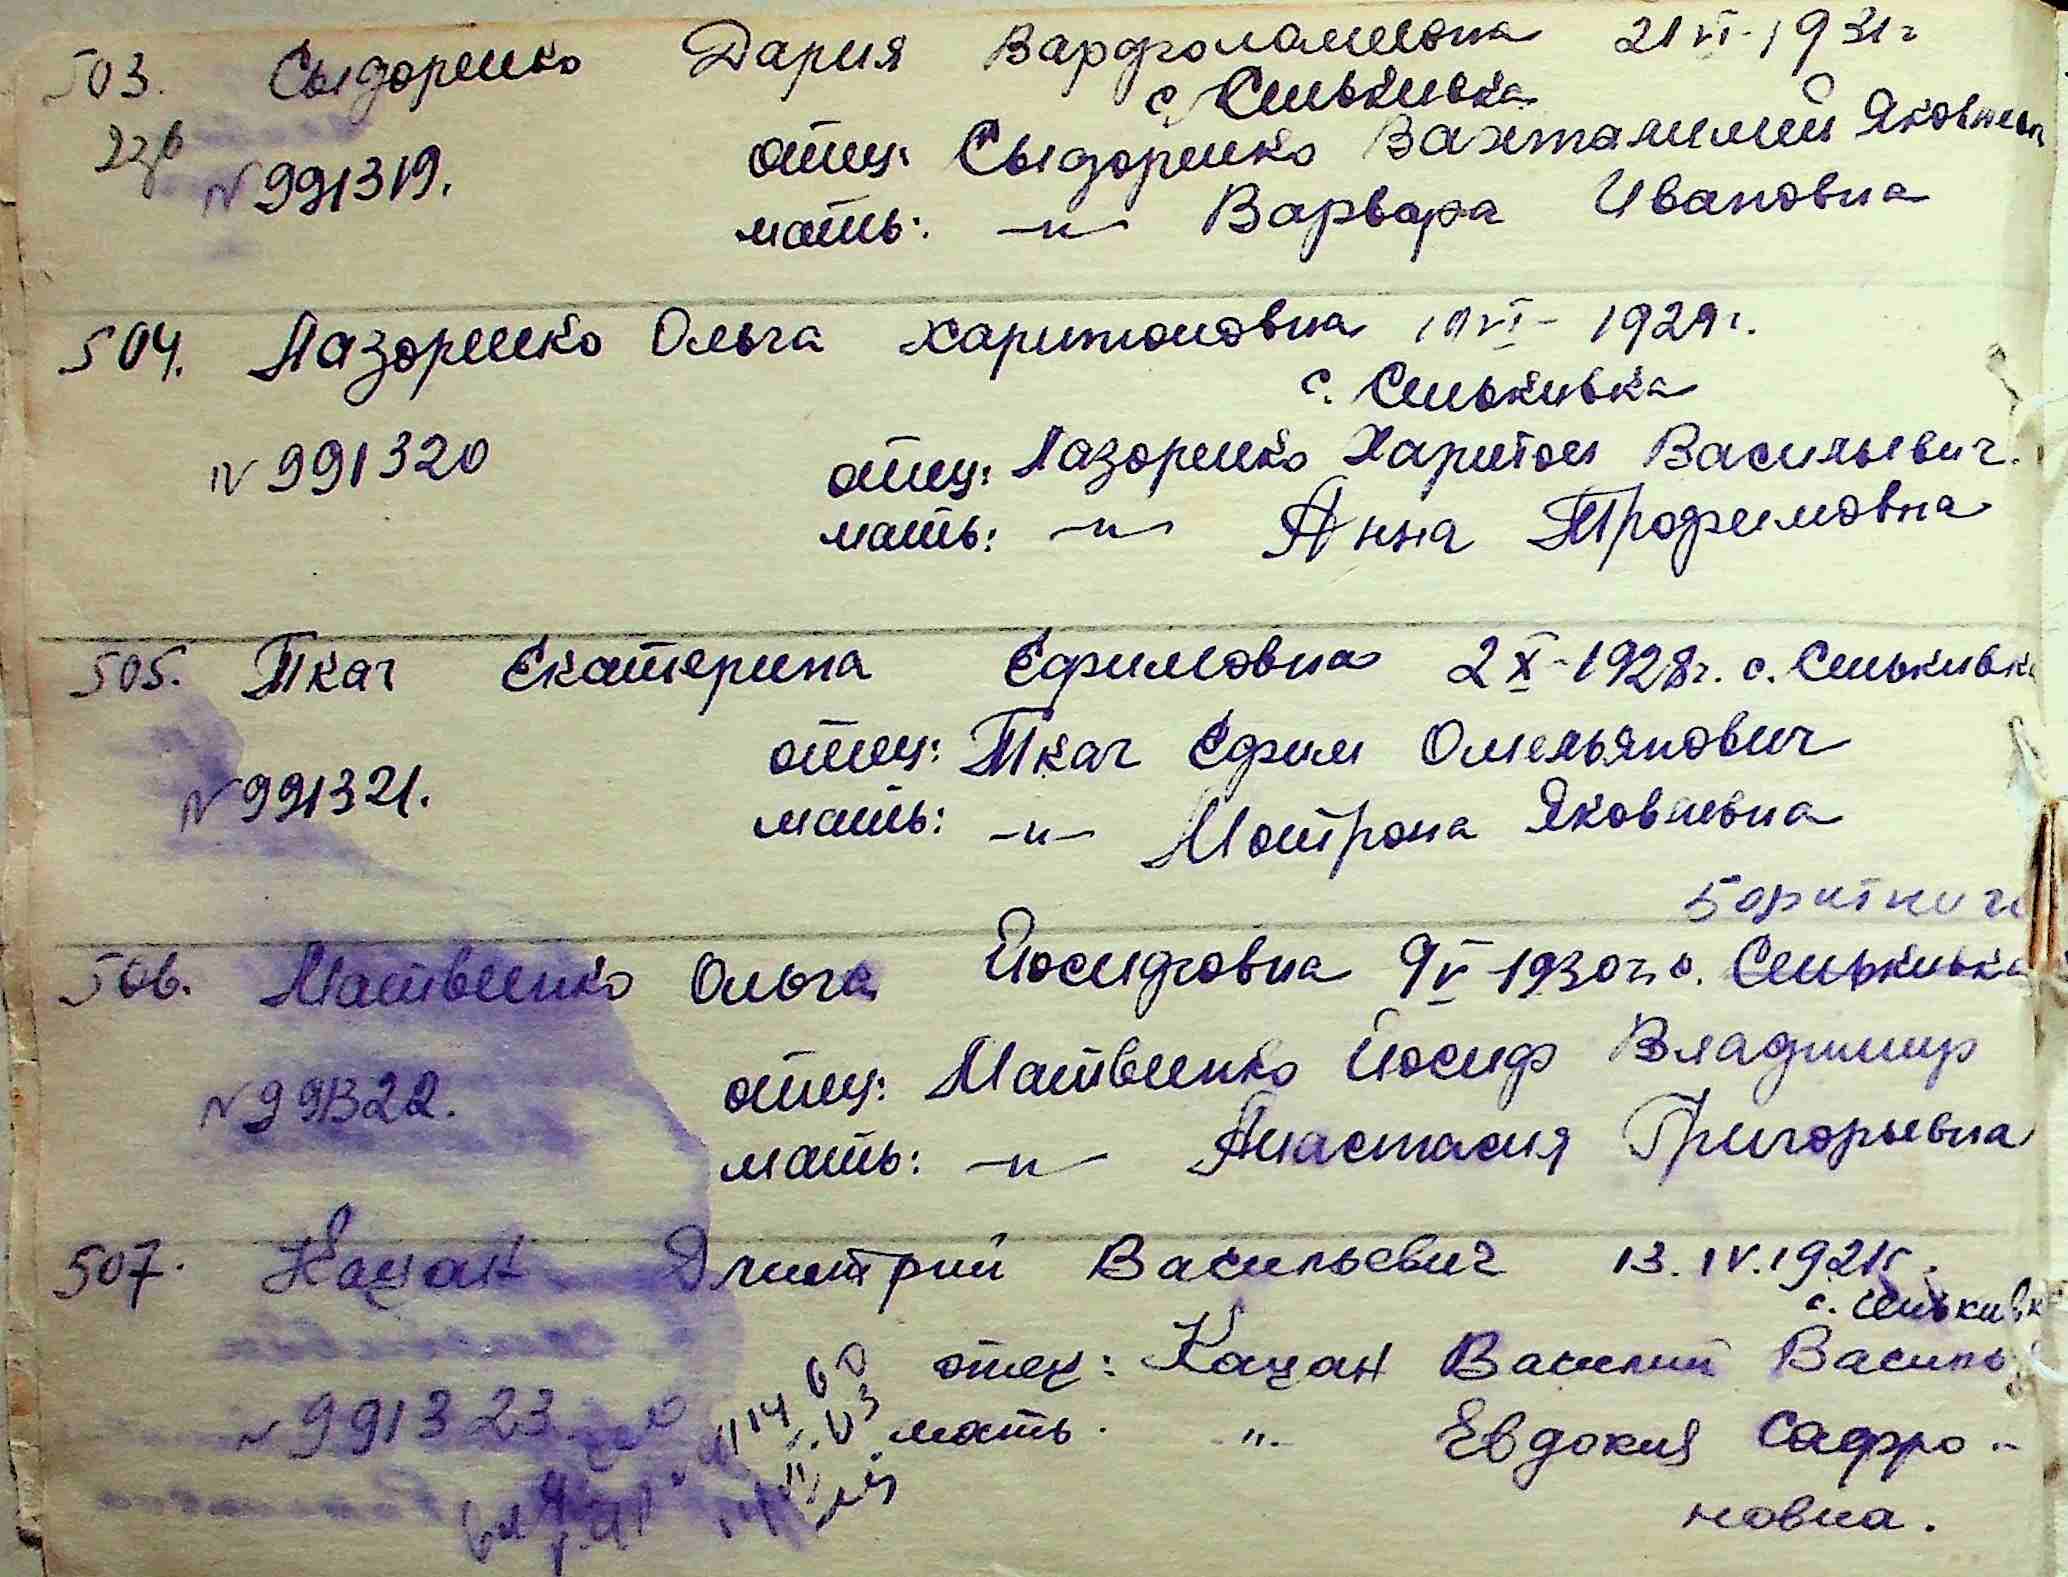 503. Сыдоренко Дария Вардголамеевна 21 VI-1931г
с. Сенькивка
отец: Сыдоренко Вахтамимий Яковлев
N 991319.
мать: —"— Варвара Ивановна
504. Лазоренко Ольга Харитоновна VI- 1929г.
с. Сенькивка
N 991320
отец: Лазоренко Харитон Васильевич.
мать: —"— Анна Трофимовна
505. Ткач Екатерина Ефимовна 2 X-1928г. с. Сенькивка
отец: Ткач Ефим Омельянович
N 991321.
мать: —"— Мотрона Яковлевна
506. Матвеенко Ольга Йосифовна 9 V-1930г. с. Сенькивка
отец: Матвеенко Йосиф Владимир
N 991322.
мать: —"— Анастасия Григорьевна
507. Кацан Дмитрий Васильевич 13.IV.1921г.
с. Сенькивк
отец: Кацан Василий Василь
N 991323.
мать. —"— Евдокия Сафро-
новна.